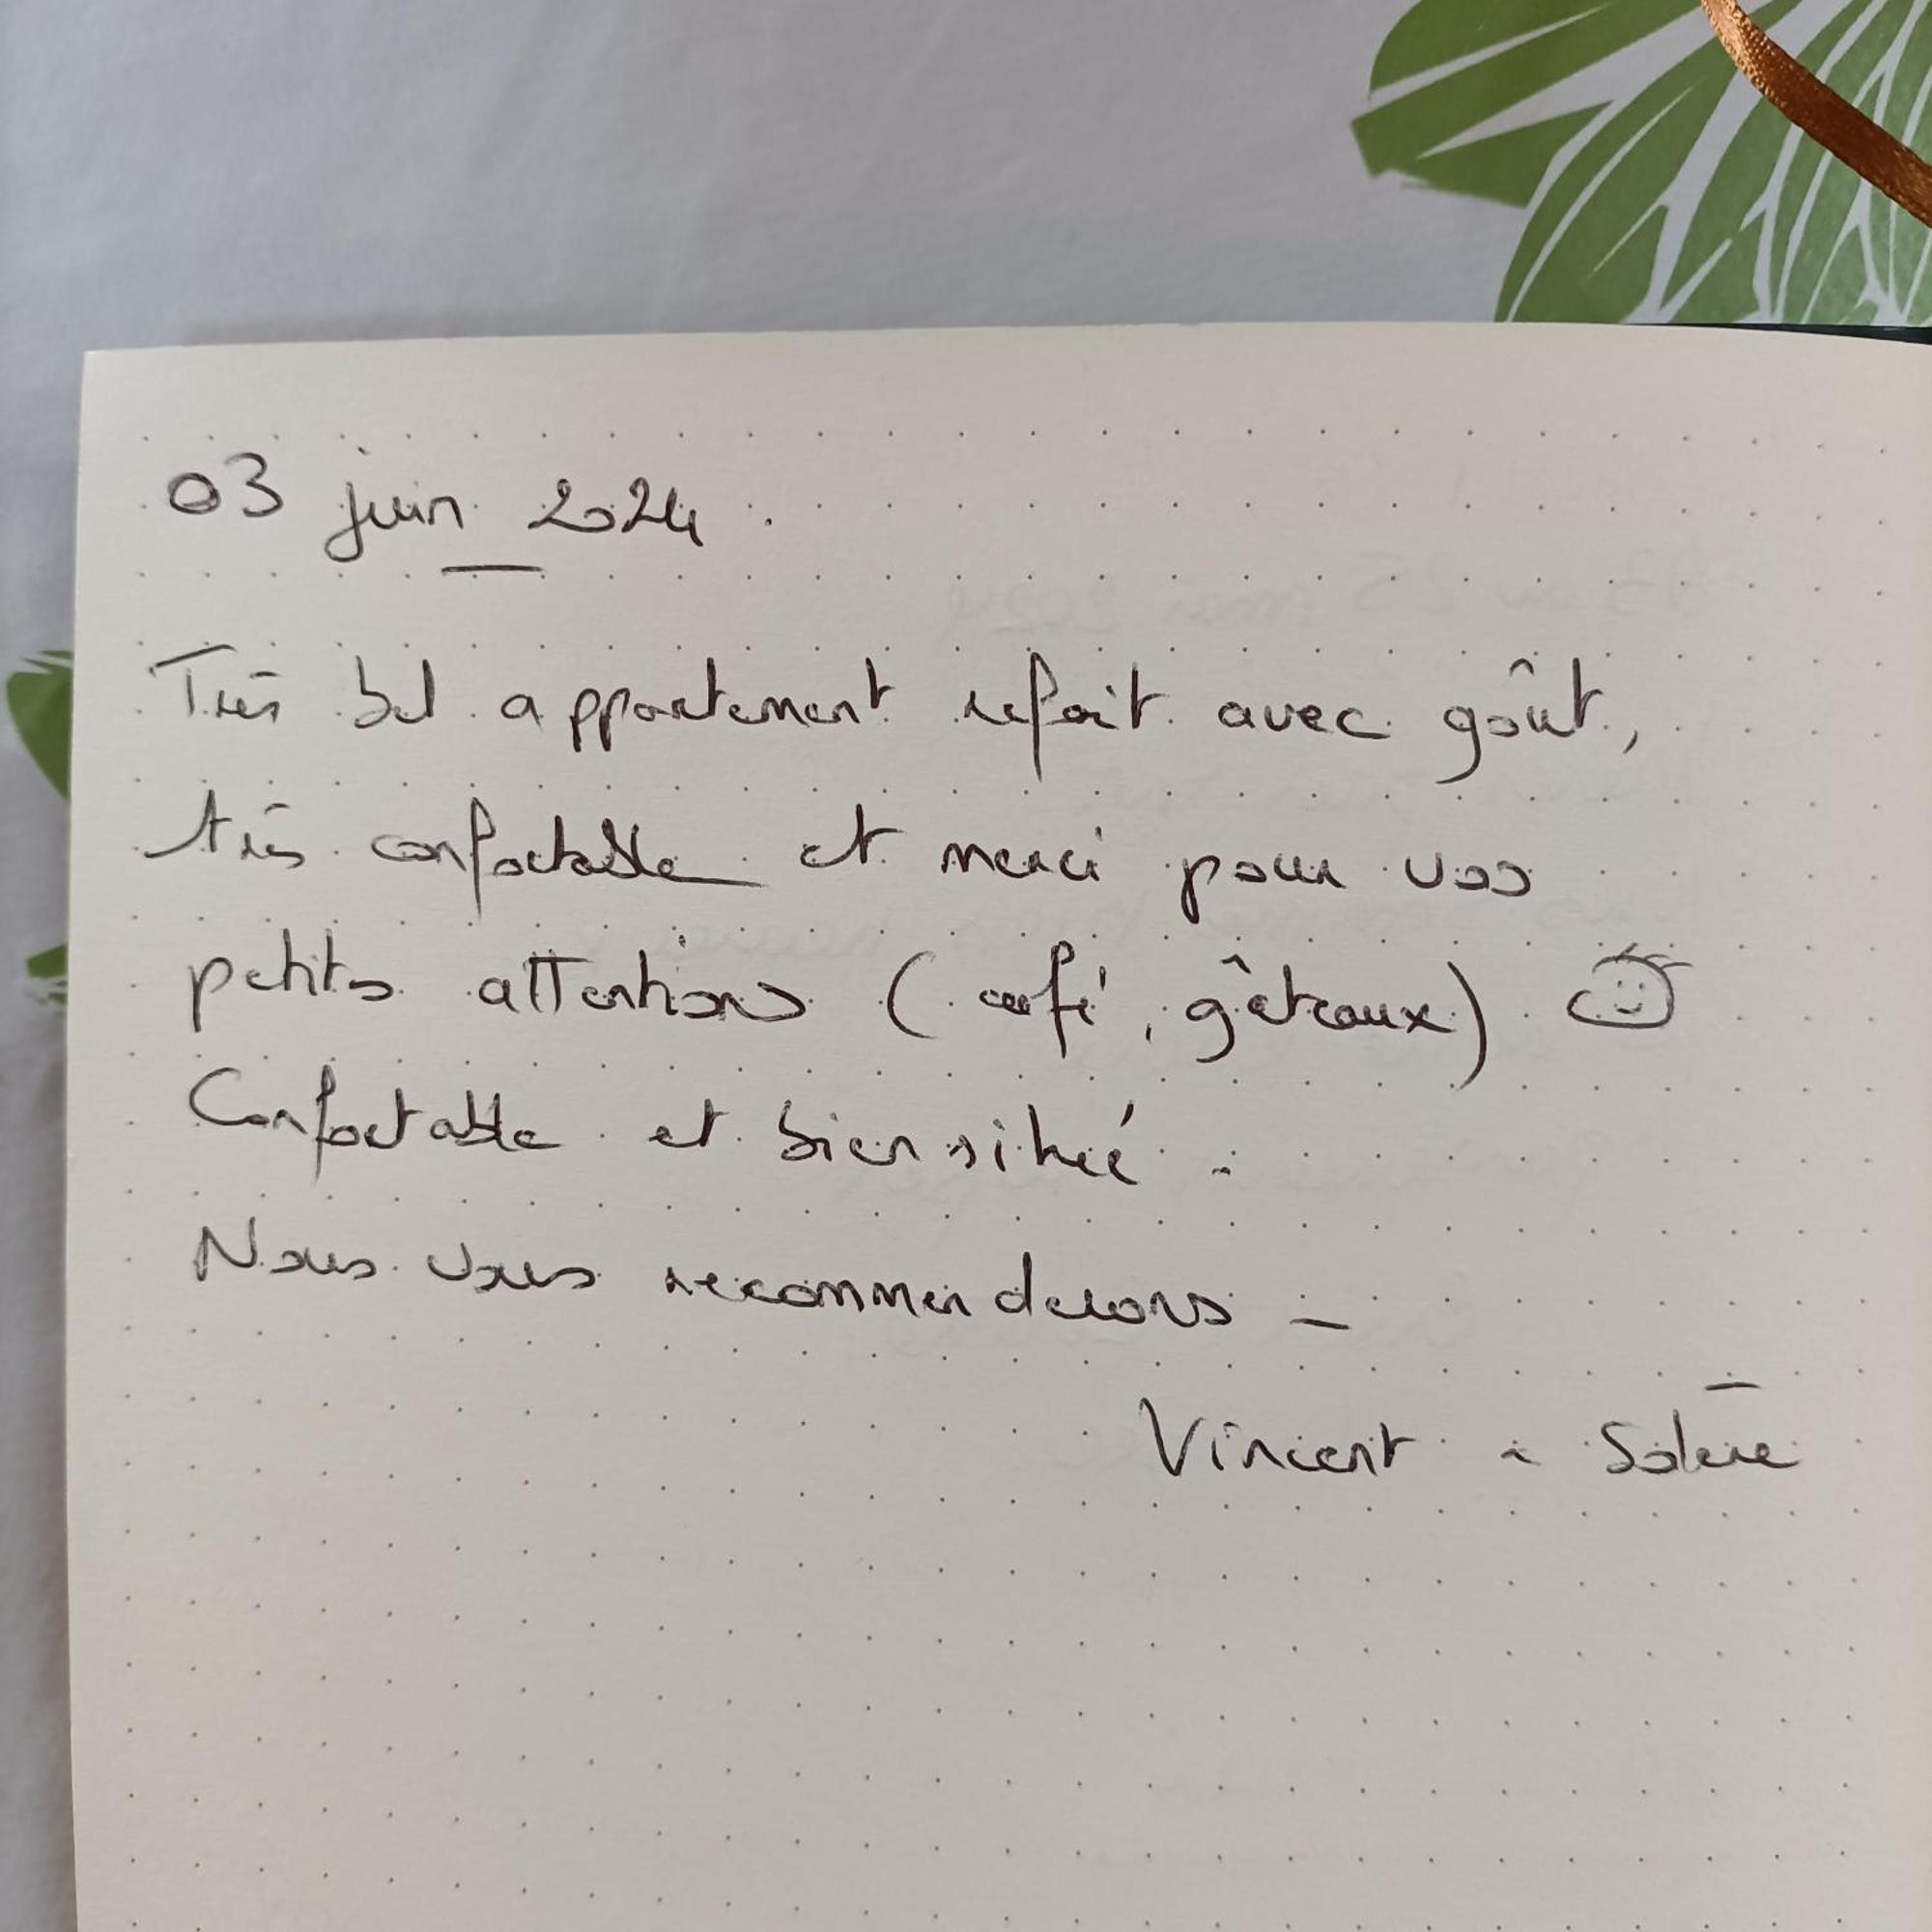 03 juin 2024.
Très bel appartement refait avec goût,
très confortable et merci pour vos
petits attentions (café, gâteaux)
Confortable et bien situé.
Nous vous recommenderons -
Vincent - Solène